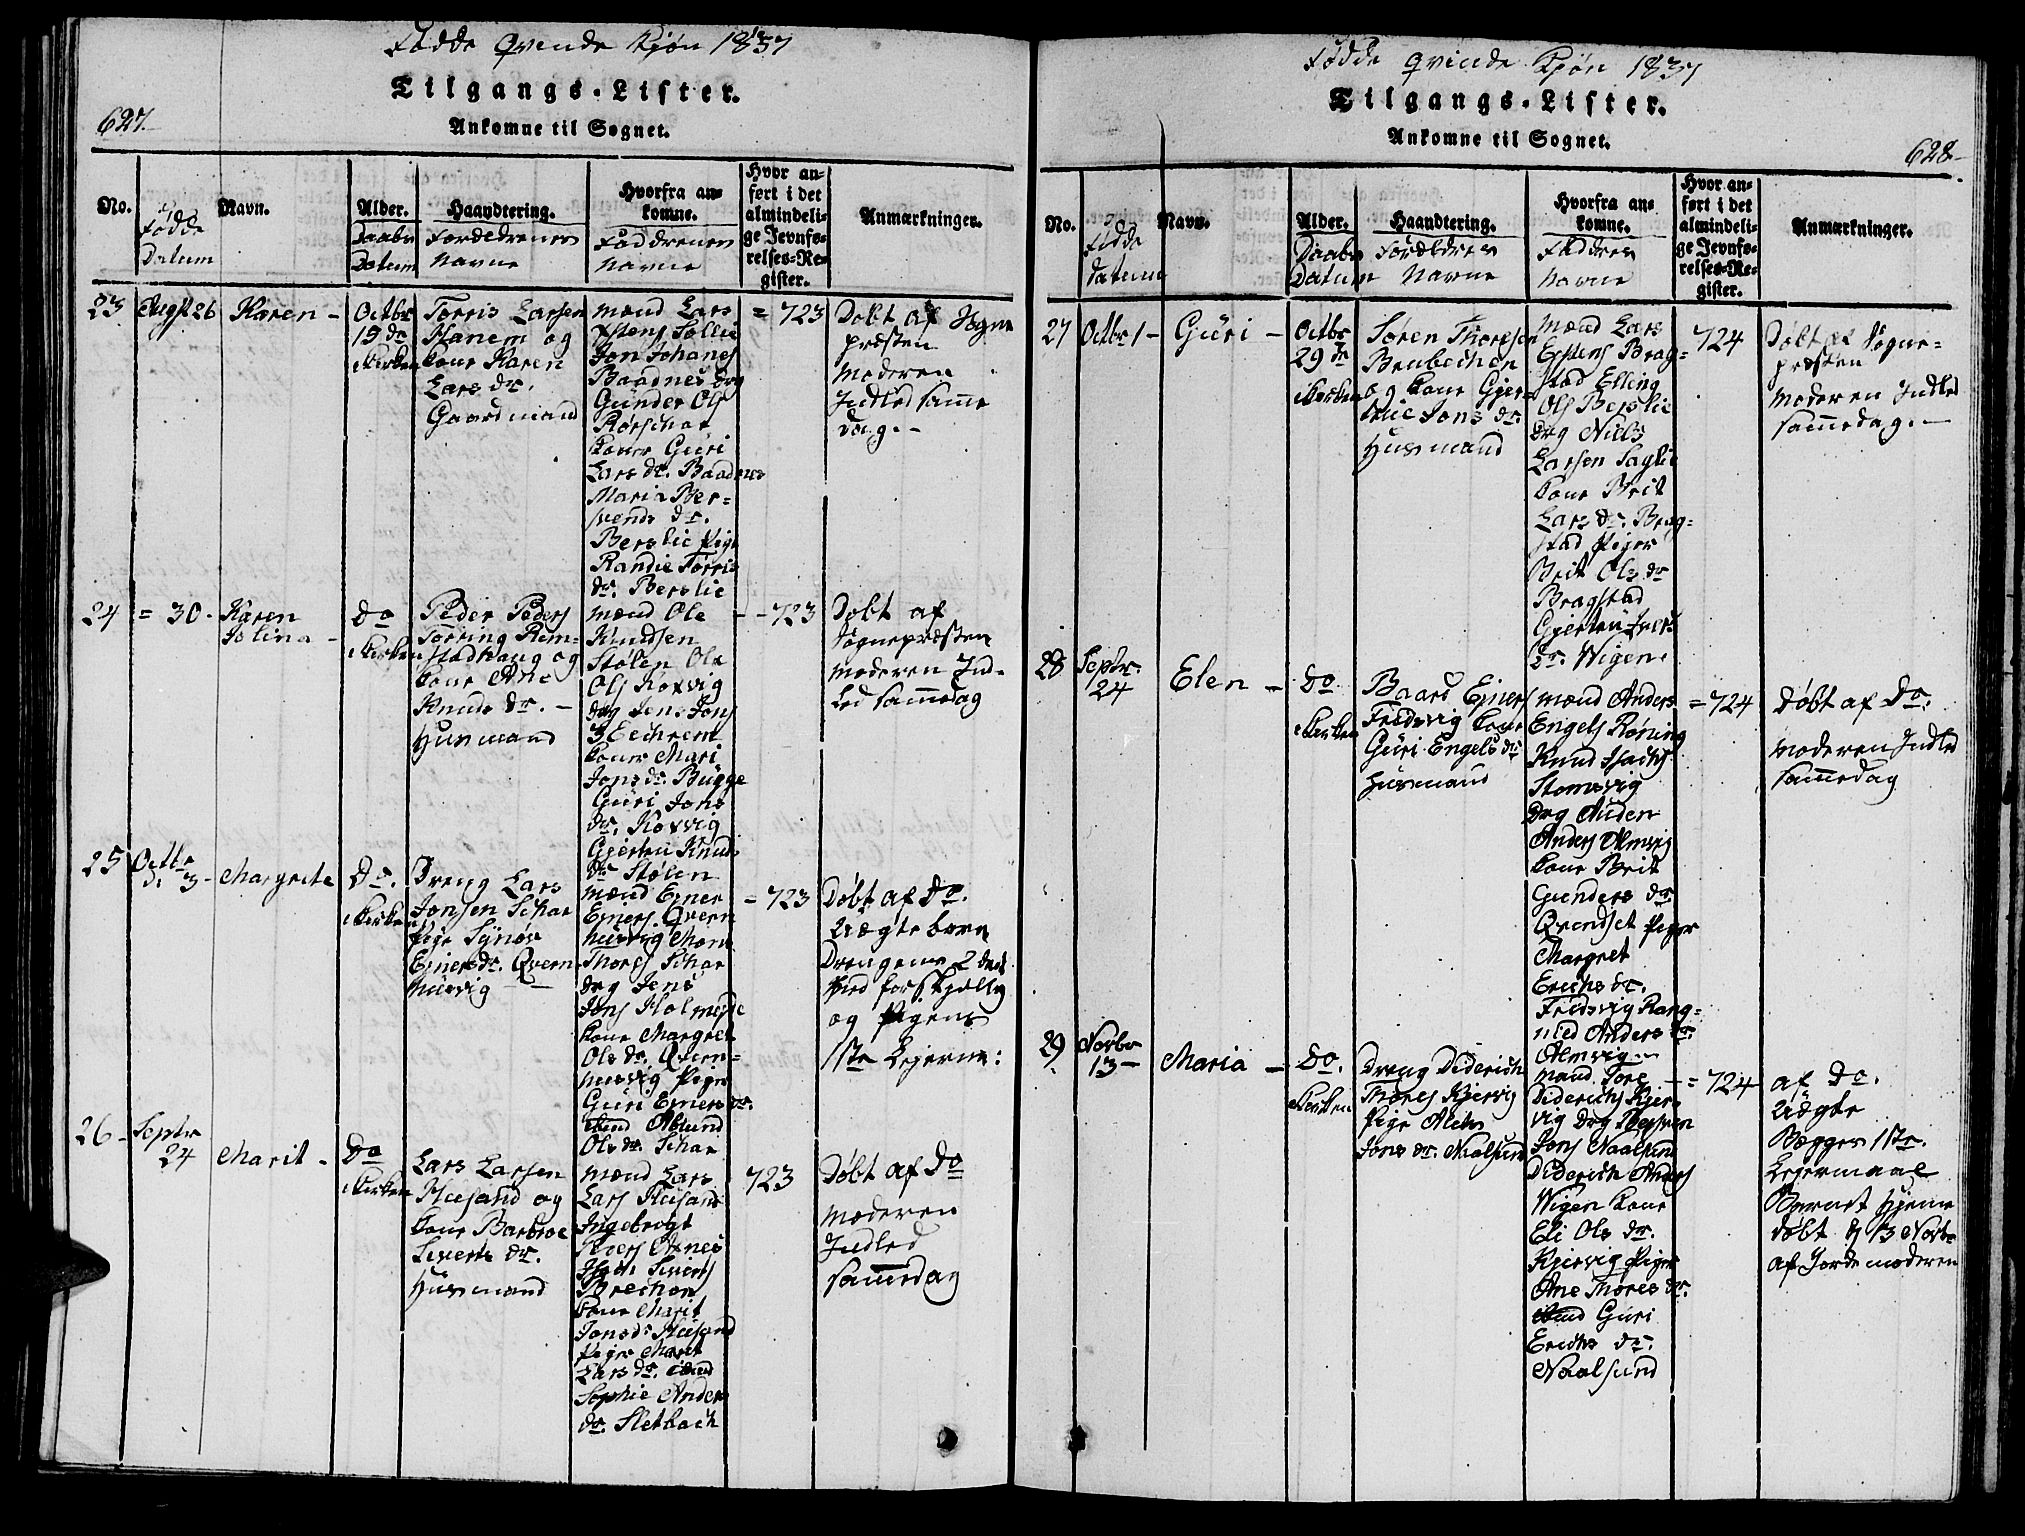 Fødde Qvinde Kjøn 1837
Tilgangs-Lister.
627.
Ankomne til Sognet.
No.
Fødde
Datum
Navn.
Alder.
Daabs
Datum
Haandtering.
Forældrenes
Navne
Hvorfra an-
komne.
Faddrenes
Navne
Hvor an-
ført i det
almindeli-
ge Jevnfø-
relses-Re-
gister.
Anmærkninger.
23
Augst 26
Karen -
Octbr
15 do
i Kirken
Torris Larsen
Hanem og
Kone Karen
Lars dr.
Gaardmand
Mænd Lars
Jon Johanes
Baadnes Drg
Gunder Ols
Rørschar
Koner Guri
Lars dr. Baadnes
Maria Ber-
svends dr.
Berslie Pige
Randie Torris
dr. Berslie
= 723
Døbt af Sogne
præsten
Moderen
Indled samme
dag. -
24
= 30 -
Karen
Iolina -
Do
i Kirken
Peder Peders
Tørring Rem-
stadhaug og
Kone Ane
Knuds dr. -
Husmand
Mænd Ole
Knudsen
Stølen Ole
Ols Koxvig
Drg Jens Jons
Koner Mari
Jons dr. Bugge
Guri Jons
dr. Koxvig
Gjertru Knuds
dr. Stølen
- 723
Døbt af
Sognepræsten
Moderen Ind-
led sammedag
25
Octbr
d. 3 -
Margrete
Do.
i Kirken
Dreng Lars
Jonsen Schar
Pige Synøv
Ejners dr. Qvern
husvig
Mænd Ejner
Ejners Qvern
husvig Mons
Thores Schar
Drg Jens
Jons Holmeide
Kone Margret
Ols dr. Qvern-
husvig Piger
Guri Ejners dr.
Ols dr. Schar
= 723
Døbt af Do.
Uægte barn
Drengens 2det
med forskjellig
og Pigens
1ste Lejerm:
26 -
Septr
24
Marit -
Do
i Kirken
Lars Larsen
Husand og
Kone Barbroe
Siverts dr.
Husmand
Mænd Lars
Lars Husand
Ingebrigt
Ivers Axnes
Brechan
Kone Marit
Jons dr Husand
Piger Marit
Lars dr.
Sophie Anders
dr. Sletbach
723
Døbt af Do
Moderen
Indled
sammedag
Fødde Qvinde Kjøn 1837
Tilgangs-Lister.
Ankomne til Sognet.
628-
No.
Fødde
Datum
Navn.
Alder.
Daabs
Datum
Haandtering.
Forældres
Navne
Hvorfra an-
komne.
Faddres
Navne
Hvor an-
ført i det
almindeli-
ge Jevnfø-
relses-Re-
gister.
Anmærkninger.
27
Octbr 1 -
Guri -
Octbr
29 do
i Kirken
Søren Thoresen
Brubechen
og Kone Gjer-
true Jons dr.
Husmand
Mænd Lars
Erstens Brag-
stad Elling
Ols Berslie
Drg Niels
Larsen Saglie
Kone Brit
Lars dr. Brag-
stad Piger
Brit Ols dr
Bragstad
Gjertru
dr. Wigene
724
Døbt af Sogne-
præsten
Moderen Indled
sammedag. -
28
Septr.
24
Elen -
Do
i Kirken
Baard Ejners
Fredsvig Kone
Guri Engels dr
Husmand
Mænd Anders
Engels Røning
Knud Isachs
Stomsvig
Drg Auden
Anders Almvig
Kone Brit
Gunders dr.
Qvendset Piger
Margret
Erichs dr.
Fredsvig Rang-
nied Anders dr.
Almvig -
= 724
Døbt af Do.
Moderen Indled
sammedag
29
Novbr
13 -
Maria -
Do.
i Kirken
Dreng Diderich
Thores Kjervig
Pige Mette
Jons dr. Naalsund
Mænd Tore
Diderichs Kjer-
vig Drg
Jons Naalsund
Diderich Anders
Wigen Kone
Eli Ols dr.
Kjervig Piger
Ane Thores dr.
Guri
Erichs dr.
Naalsund
= 724
af Do.
Uægte
Bægges 1ste
Lejermaal
Barnet Hjeme
døbt d 13 Novbr
af Jordemoderen